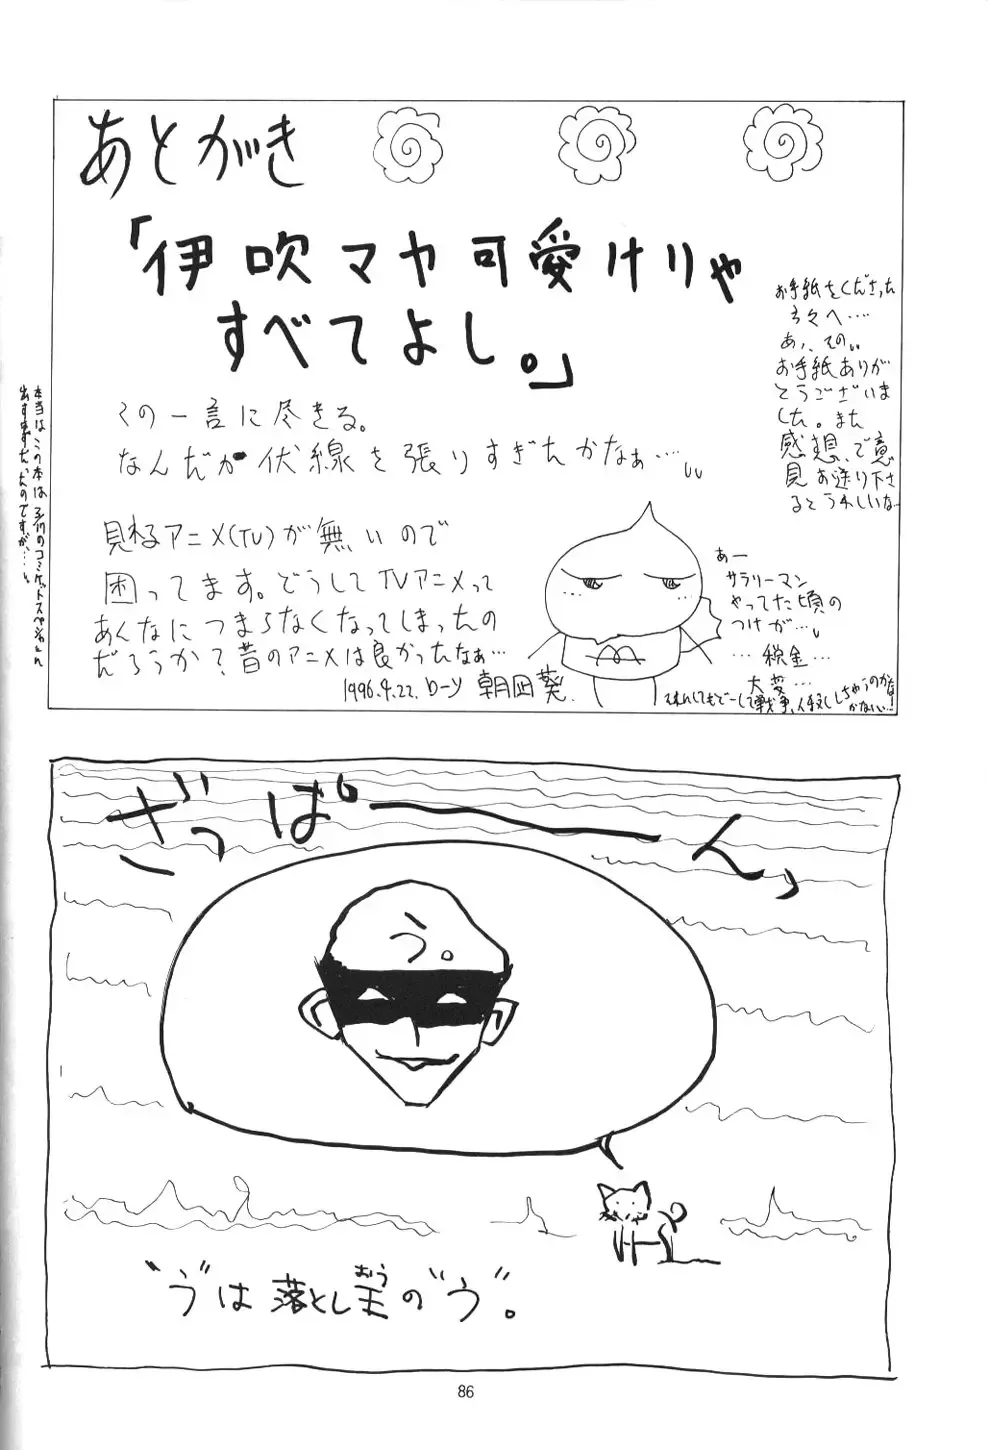 あとがき
「伊吹マヤ可愛けりゃ
すべてよし。」
この一言に尽きる。
なんだか伏線を張りすぎたかなぁ…
見れるアニメ(TV)が無いので
困ってます。どうしてTVアニメって
あんなにつまらなくなってしまったの
だろうか?昔のアニメは良かったなぁ…
1996.4.22. ローソ 朝凪葵.
お手紙をくださった
方々へ…
あ、その、
お手紙ありが
とうございま
した。また
感想、ご意
見お送り下さ
るとうれしいな
あー
サラリーマン
やってた頃の
つけが…
…税金…
大変…
本当はこの本は3/17のコミケットスペシャルに
出すはずだったのですが…
ざっぱーーん
う。
"う"は落とし王の"う"。
おう
86